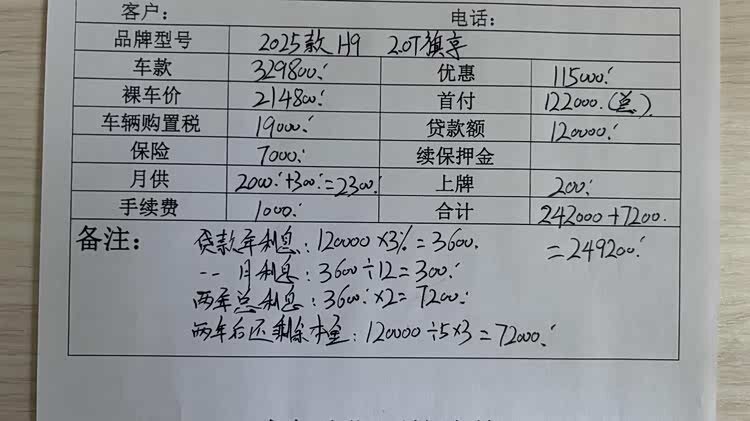 客户： 电话：
品牌型号 2025款 H9 2.0T旗享
车款 329800. 优惠 115000.
裸车价 214800. 首付 122000.(总).
车辆购置税 19000. 贷款额 120000.
保险 7000. 续保押金
月供 2000.+300.=2300. 上牌 200.
手续费 1000. 合计 242000+7200.
备注： 贷款年利息：120000×3%=3600. =249200.
一月利息：3600÷12=300.
两年总利息：3600×2=7200.
两年后还剩余本金：120000÷5×3=72000.